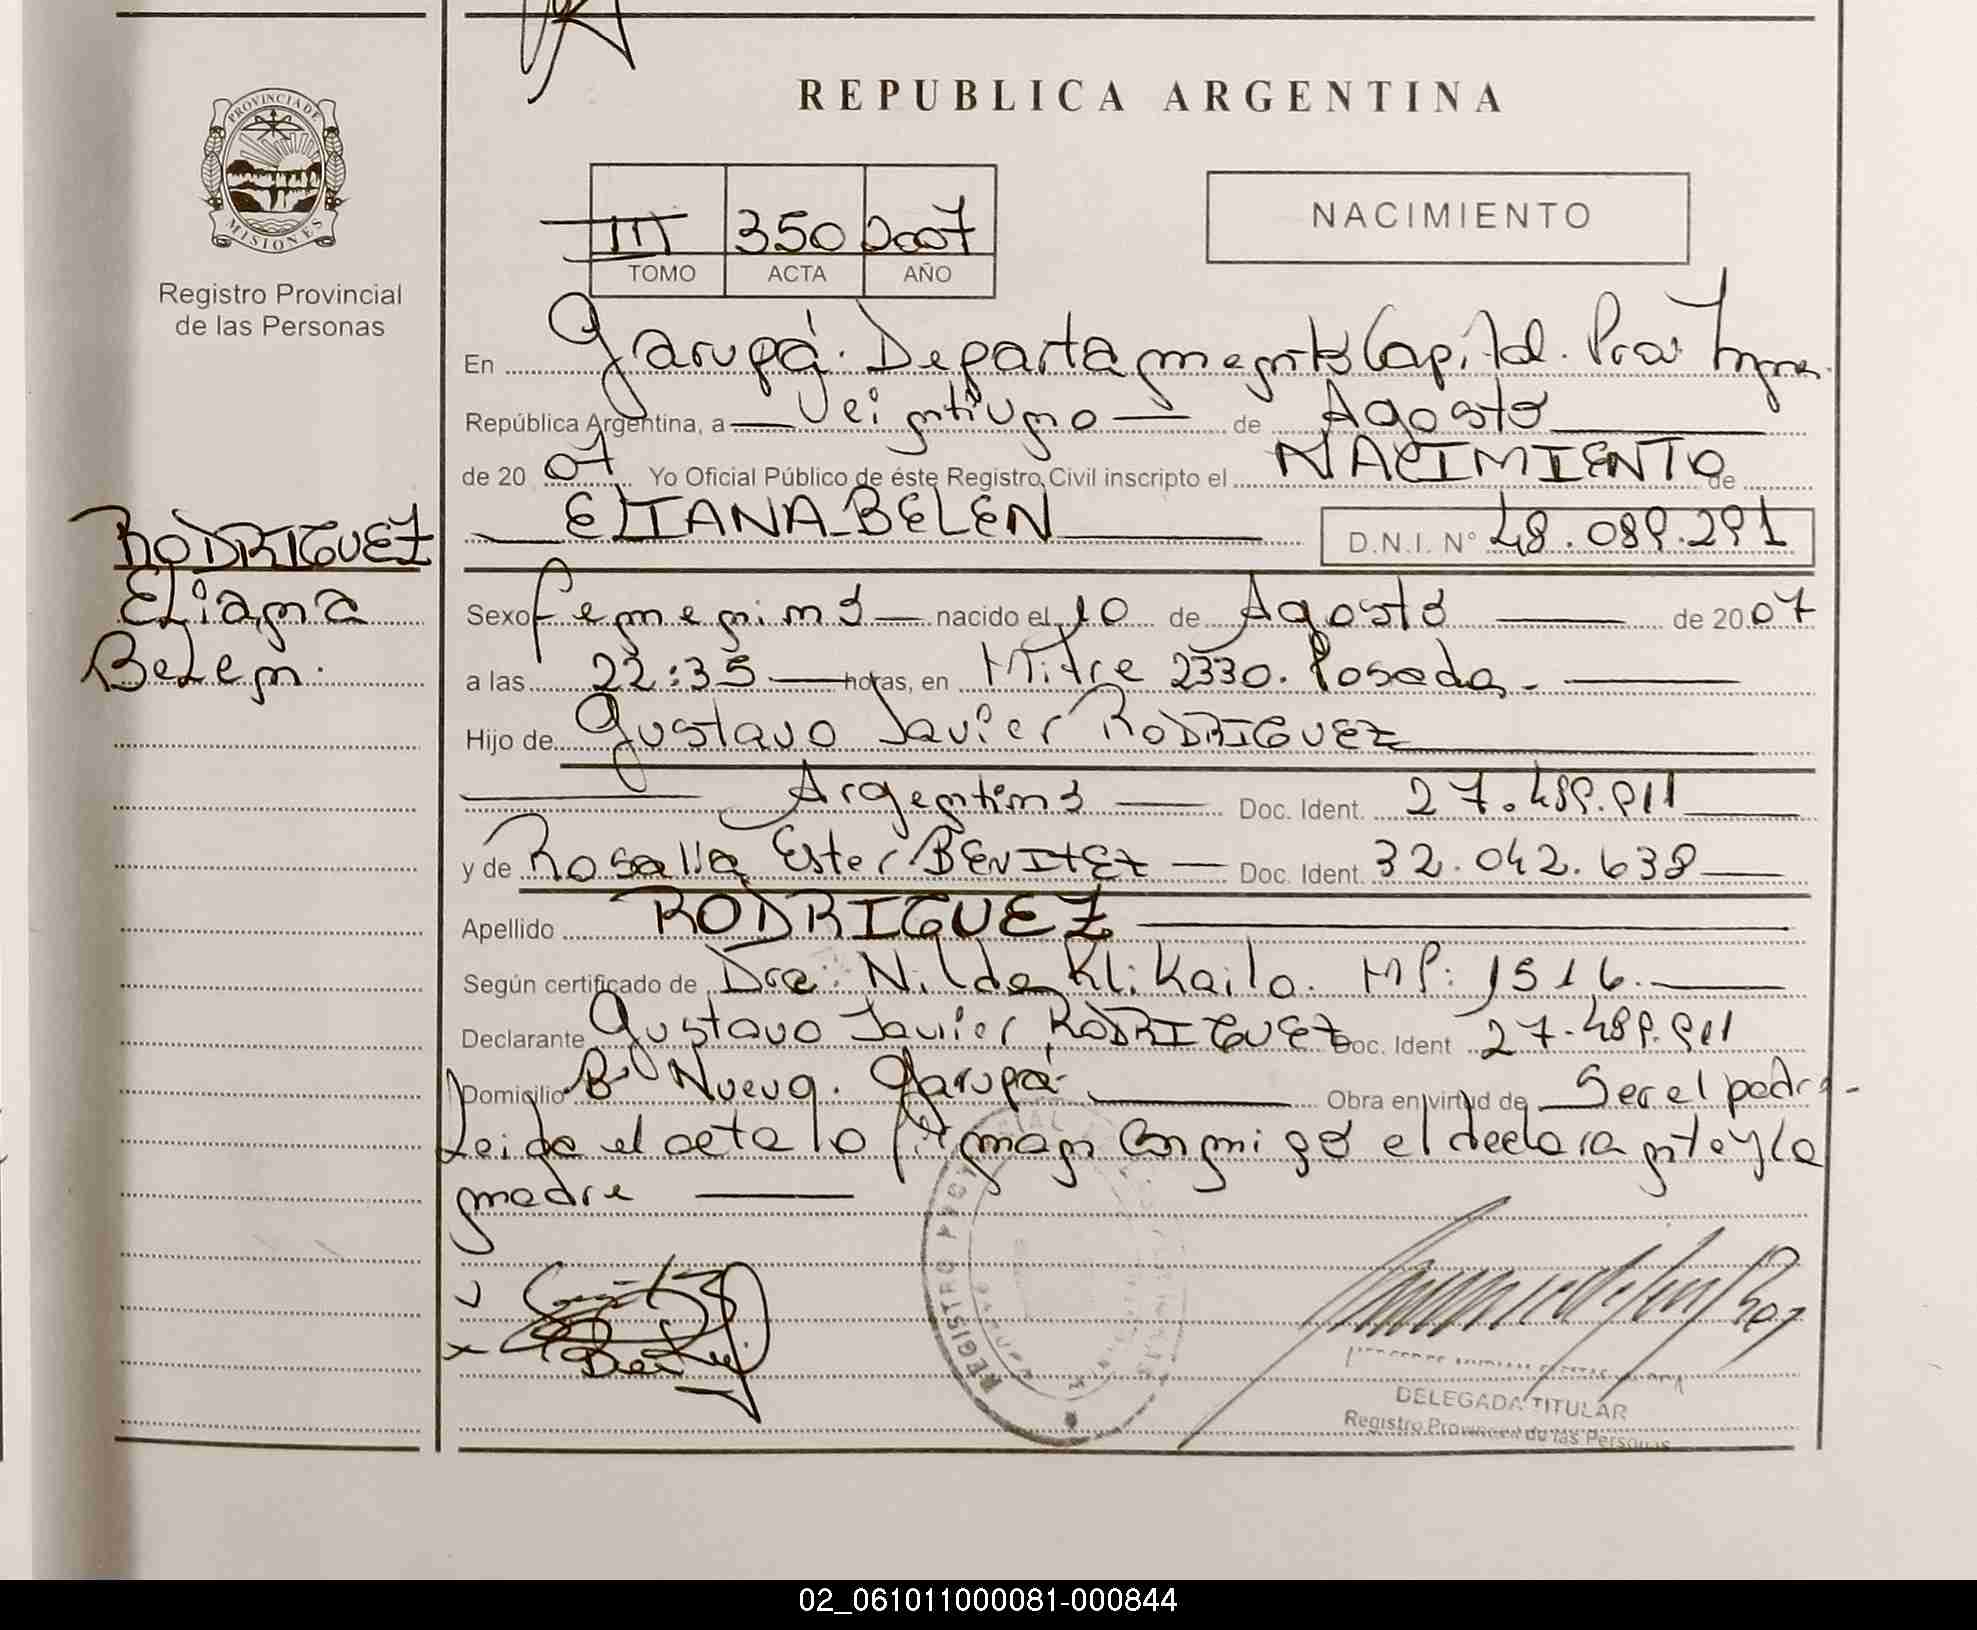 REPUBLICA ARGENTINA
PROVINCIA DE
MISIONES
Registro Provincial
de las Personas
III 350 2007
TOMO ACTA AÑO
NACIMIENTO
En Garupá. Departamento Capital. Pcia:
República Argentina, a Veintiuno de Agosto
de 2007 Yo Oficial Público de éste Registro Civil inscripto el NACIMIENTO de
ELIANA BELEN D.N.I. N° 48.089.291
RODRIGUEZ
Eliana
Belen.
Sexo femenino nacido el 10 de Agosto de 2007
a las 22:35 horas, en Mitre 2330. Posadas
Hijo de Gustavo Javier RODRIGUEZ
Argentino Doc. Ident. 27.489.911
y de Rosalia Ester BENITEZ Doc. Ident. 32.042.638
Apellido RODRIGUEZ
Según certificado de Dra: Nilda Klikailo. MP: 1516.
Declarante Gustavo Javier RODRIGUEZ Doc. Ident 27.489.911
Domicilio B° Nuevo. Garupá Obra en virtud de Ser el padre
Leida el acta lo firman conmigo el declarante y la
madre
REGISTRO
DELEGADA TITULAR
Registro Provincial de las Personas
02_061011000081-000844